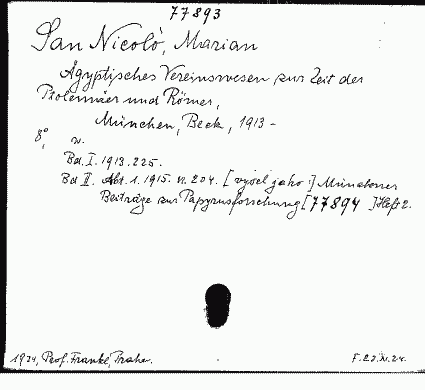 77893
San Nicolò, Marian
Ägyptisches Vereinswesen zur Zeit der
Ptolemäer und Römer,
München, Beck, 1913 -
8°,
Bd. I. 1913. 225.
Bd II. Abt. 1. 1915. n. 204. [vyšel jako:] Münchener
Beiträge zur Papyrusforschung [77894] Heft 2.
1924, Prof. Frankl, Praha.
F. 22. XI. 24.